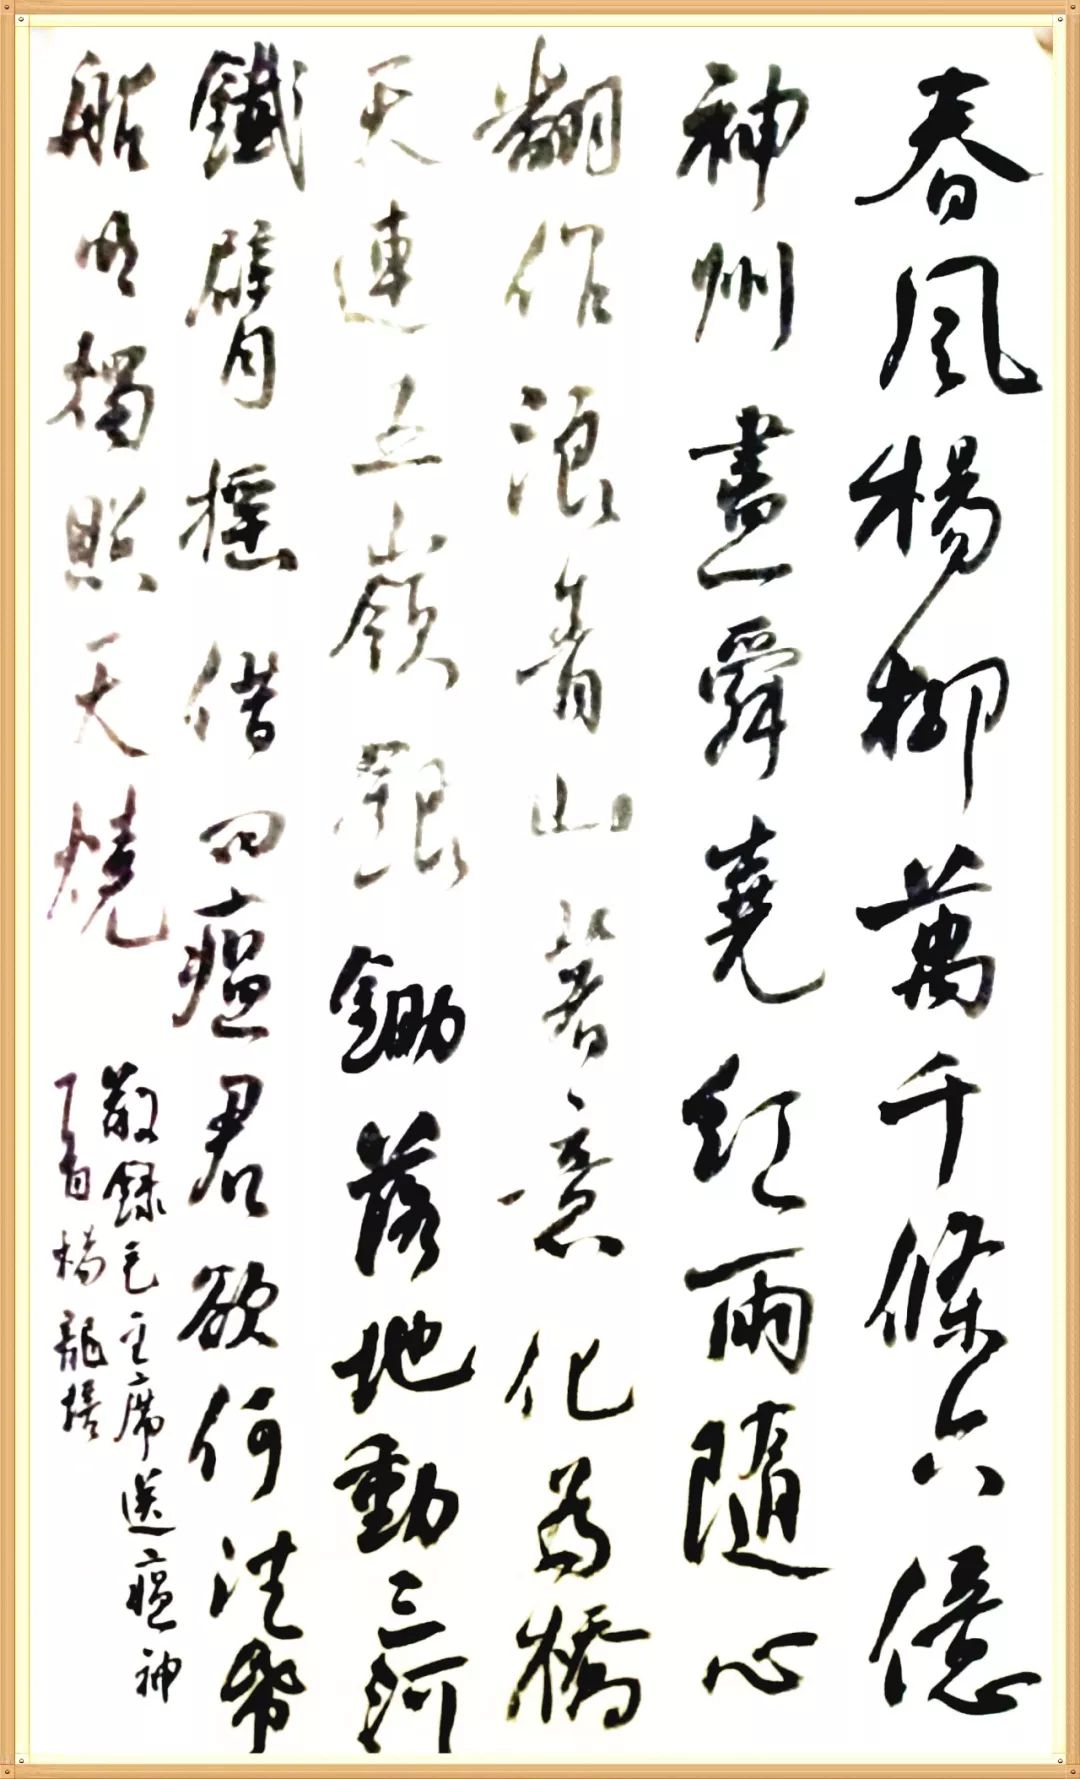 春風楊柳萬千條六億
神州盡舜堯紅雨隨心
翻作浪青山著意化為橋
天連五嶺銀鋤落地動三河
鐵臂搖借问瘟君欲何往紙
船明燭照天燒
敬錄毛主席送瘟神
丁酉楊龍